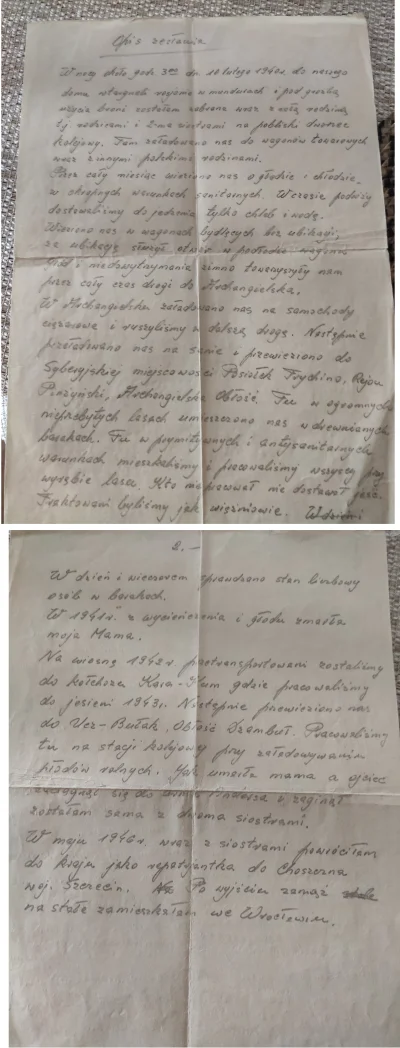 Opis zesłania
W nocy około godz 3ej dn. 10 lutego 1940r. do naszego
domu wtargnęli rosjanie w mundurach i pod groźbą
użycia broni zostałam zabrana wraz z całą rodziną
tj rodzicami i 2-ma siostrami na pobliski dworzec
kolejowy. Tam załadowano nas do wagonów towarowych
wraz z innymi polskimi rodzinami.
Przez cały miesiąc wieziono nas o głodzie i chłodzie,
w okropnych warunkach sanitarnych. W czasie podróży
dostawaliśmy do jedzenia tylko chleb i wodę.
Wieziono nas w wagonach bydlęcych bez ubikacji,
za ubikację służył otwór w podłodze wagonu.
Głód i niedowytrzymania zimno towarzyszyły nam
przez cały czas drogi do Archangielska.
W Archangielsku załadowano nas na samochody
ciężarowe i ruszyliśmy w dalszą drogę. Następnie
przeładowano nas na sanie i przewieziono do
Syberyjskiej miejscowości Posiołek Rejon
Pinżyński, Archangielska Obłość. Tu w ogromnych
nieprzebytych lasach umieszczono nas w drewnianych
barakach. Tu w prymitywnych i antysanitarnych
warunkach mieszkaliśmy i pracowaliśmy wszyscy przy
wyrębie lasu. Kto nie pracował nie dostawał jeść.
Traktowani byliśmy jak więźniowie. W dzień i
2.-
W dzień i wieczorem sprawdzano stan liczbowy
osób w barakach.
W 1941r. z wycieńczenia i głodu zmarła
moja Mama.
Na wiosnę 1942r. przetransportowani zostaliśmy
do kołchozu Kara-Kum gdzie pracowaliśmy
do jesieni 1943r. Następnie przewieziono nas
do Ucz-Bułak, Obłość Dżambuł. Pracowaliśmy
tu na stacji kolejowej przy załadowywaniu
płodów rolnych. Jak umarła mama a ojciec
zaciągnął się do armii Andersa i zaginął
zostałam sama z dwoma siostrami.
W maju 1946r. wraz z siostrami powróciłam
do kraju jako repatriantka do Choszczna
woj. Szczecin. Po wyjściu zamąż
na stałe zamieszkałam we Wrocławiu.